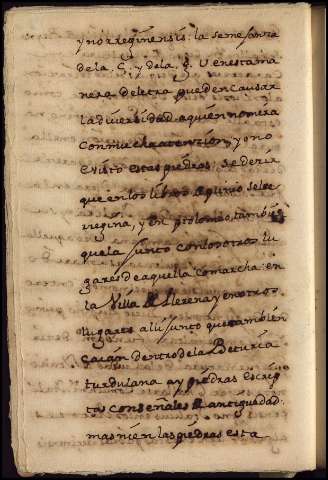 y no rreginensis: la semejanza
de la C. y de la g. v en esta ma
nera de letra pueden causar
la diversidad a quien no mira
con mucha atención, y o no
e visto estas piedras: se decir
que en los libros antiguos se lee
regina, y en ptolomeo tambien
que la junto con los otros lu
gares de aquella comarca: en
la Villa de Llerena y en otros
lugares alli junto que tambien
caian dentro de la Beturia
turdulana ay piedras escrip
tas con señales de antiguedad:
mas ni en las piedras esta